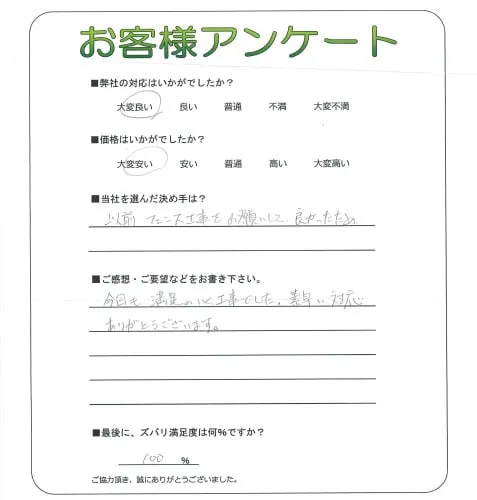 お客様アンケート
■弊社の対応はいかがでしたか？
大変良い 良い 普通 不満 大変不満
■価格はいかがでしたか？
大変安い 安い 普通 高い 大変高い
■当社を選んだ決め手は？
以前 フェンス工事をお願いして、良かったため
■ご感想・ご要望などをお書き下さい。
今回も、満足のいく工事でした。素早い対応
ありがとうございます。
■最後に、ズバリ満足度は何%ですか？
100 %
ご協力頂き、誠にありがとうございました。